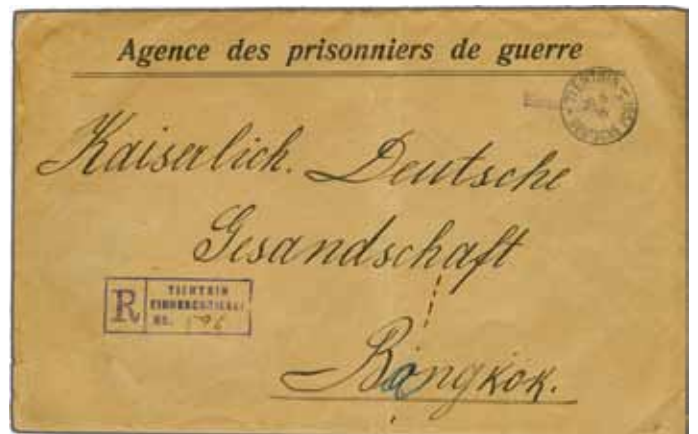 Agence des prisonniers de guerre
Kaiserlich. Deutsche
Gesandschaft
R
TIENTSIN
No. 596
Bangkok.